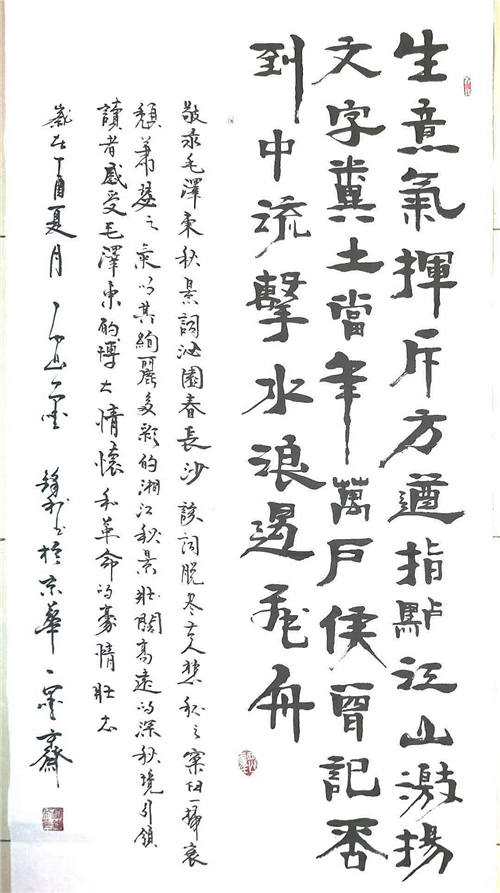 生意氣揮斥方遒指點江山激揚
文字糞土當年萬戶侯曾記否
到中流擊水浪遏飛舟
敬录毛澤東秋景詞沁園春長沙該詞脫尽古人悲秋之窠臼一掃衰
頹萧瑟之氣以其絢麗多彩的湘江秋景壯闊高遠的深秋境引領
讀者感受毛澤東的博大情懷和革命的豪情壯志
歲在丁酉夏月 书於京華一墨齋